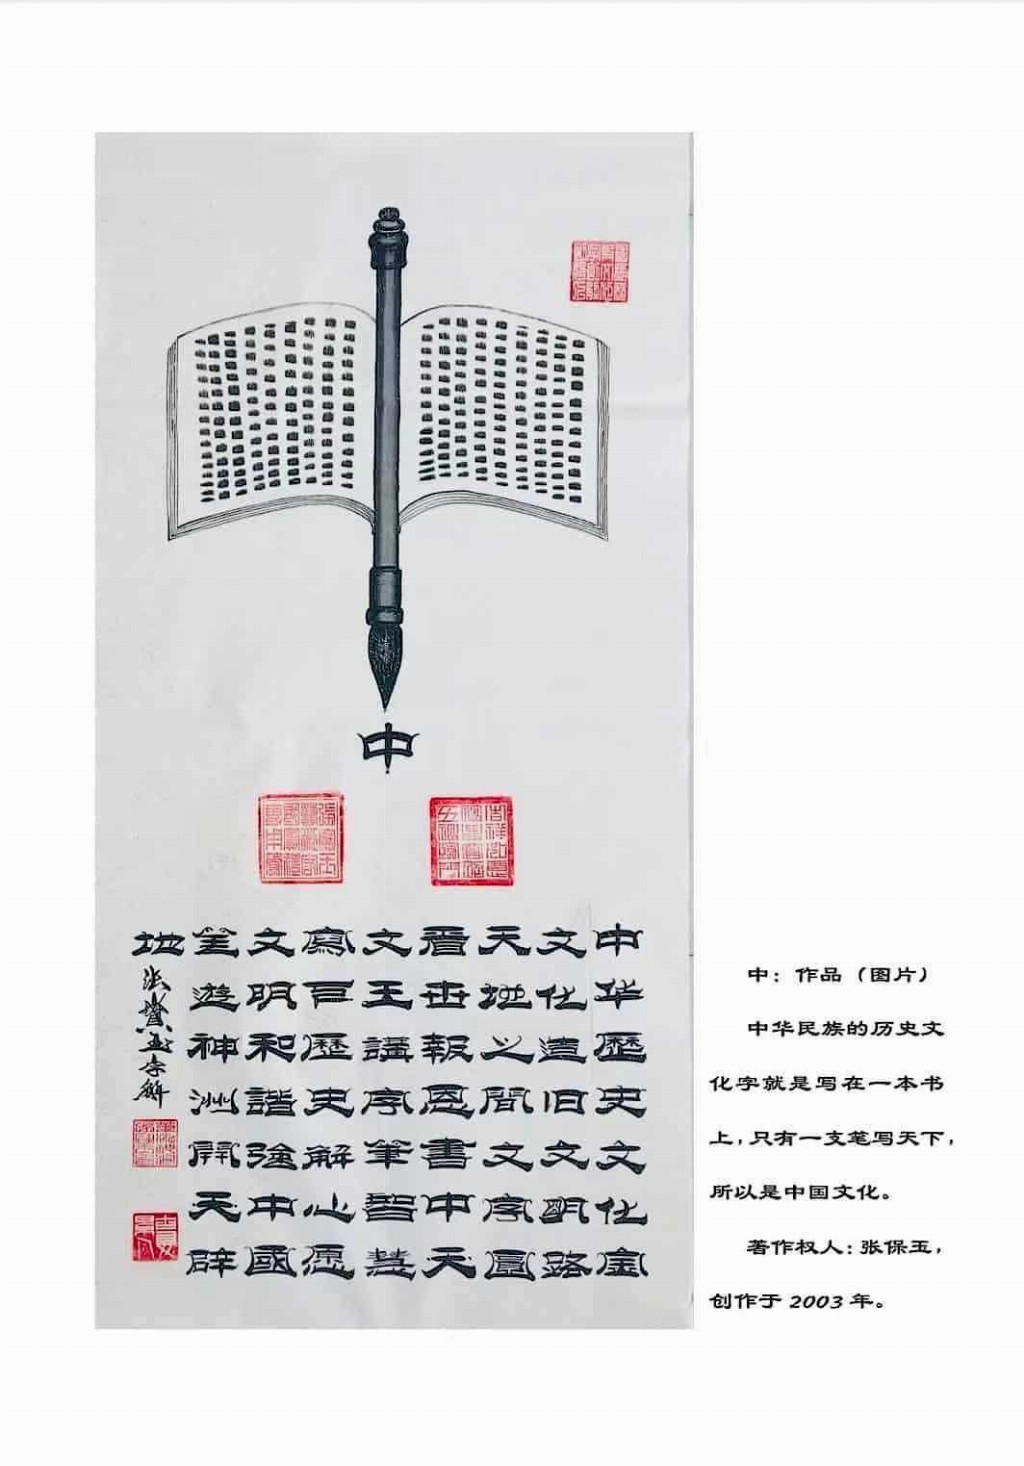 中
中华歷史文化金
文化旧文明路
天地之間文字圓
報恩書中天
文王講字筆智慧
寫歷史解心愿
文明和諧强中國
遊神洲開天辟
地
中：作品（图片）
中华民族的历史文
化字就是写在一本书
上，只有一支笔写天下，
所以是中国文化。
著作权人：张保玉，
创作于 2003 年。